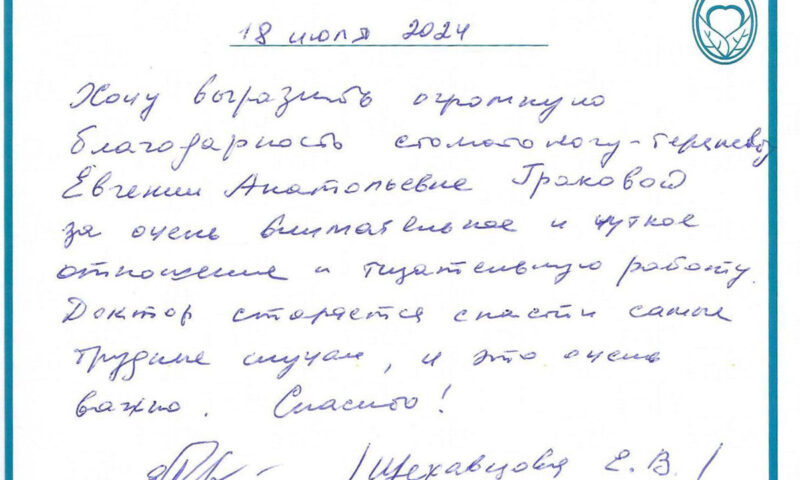 18 июля 2024
Хочу выразить огромную
благодарность стоматологу-терапевту
Евгении Анатольевне Граковой
за очень внимательное и чуткое
отношение и тщательную работу.
Доктор старается спасти самые
трудные случаи, и это очень
важно. Спасибо!
/Щекавцова Е. В./